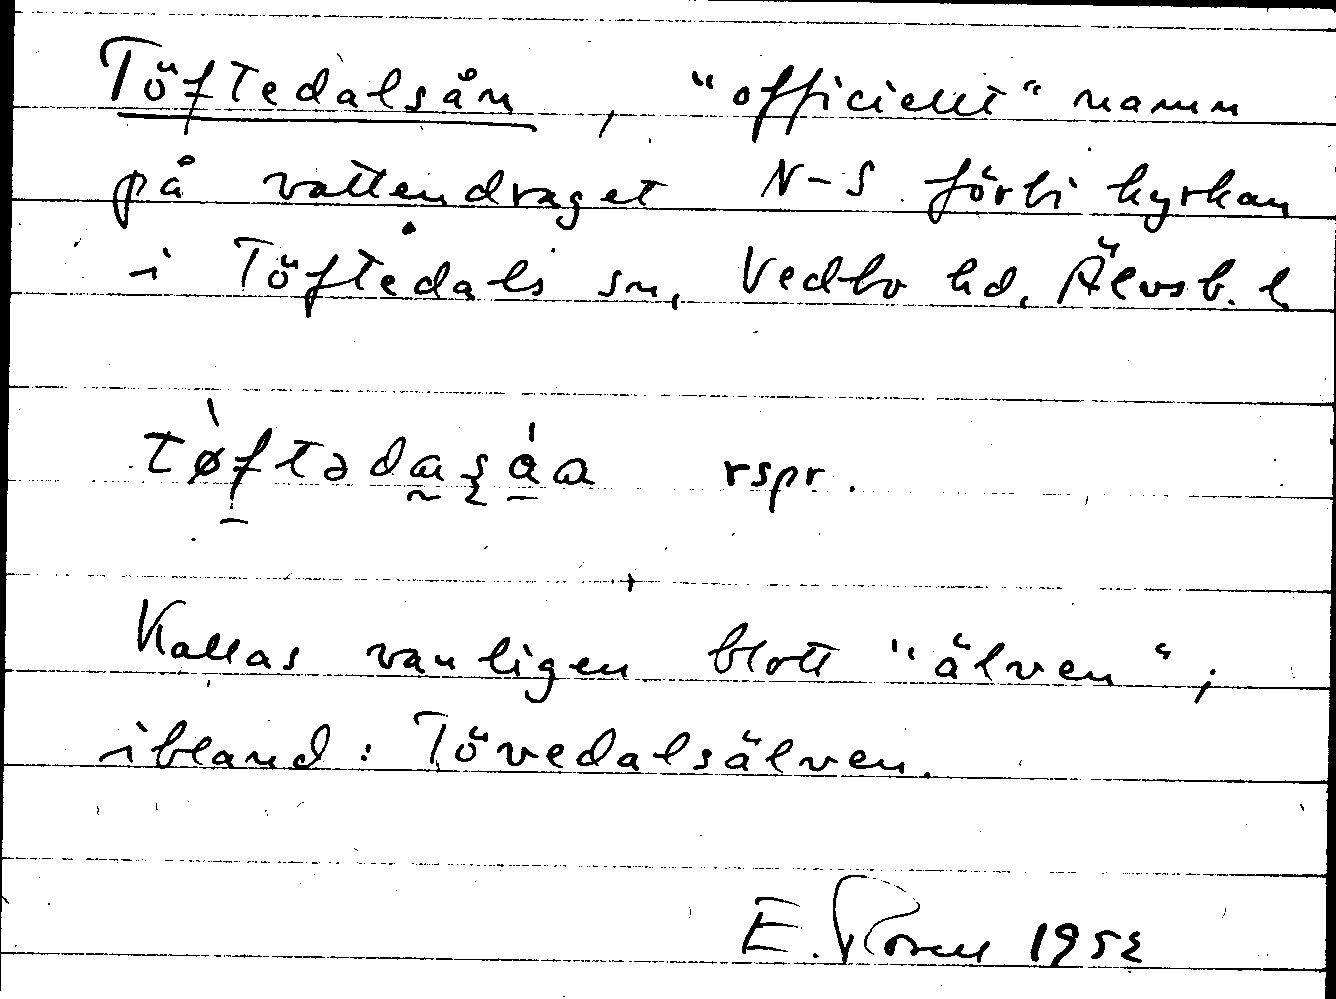 Töftedalsån, "officiellt" namn
på vattendraget N-S förbi kyrkan
i Töftedals sn, Vedbo hd, Älvsb. l.
tø̀ftədaʂáa rspr.
Kallas vanligen blott "älven";
ibland: Tövedalsälven.
E. Rosell 1952